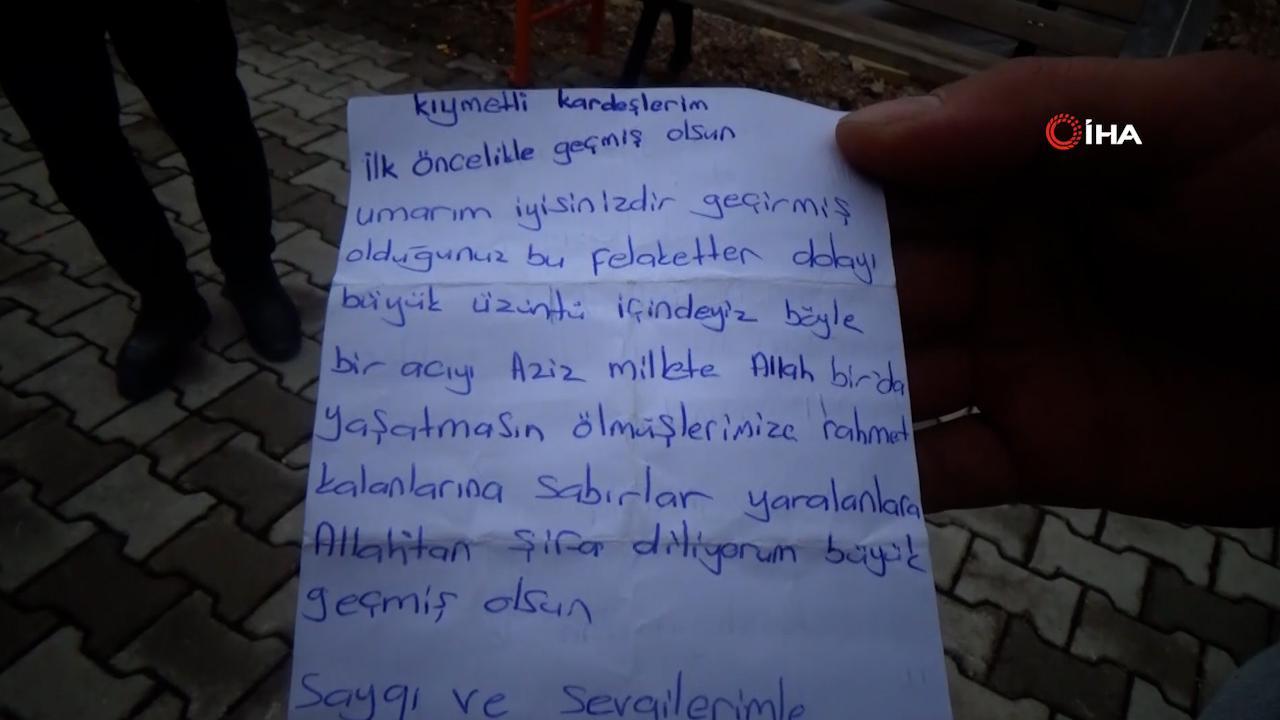 kıymetli kardeşlerim
ilk öncelikle geçmiş olsun
umarım iyisinizdir geçirmiş
olduğunuz bu felaketten dolayı
büyük üzüntü içindeyiz böyle
bir acıyı Aziz millete Allah bir'da
yaşatmasın ölmüşlerimize rahmet
kalanlarına sabırlar yaralanlara
Allah'tan şifa diliyorum büyük
geçmiş olsun
Saygı ve sevgilerimle
İHA